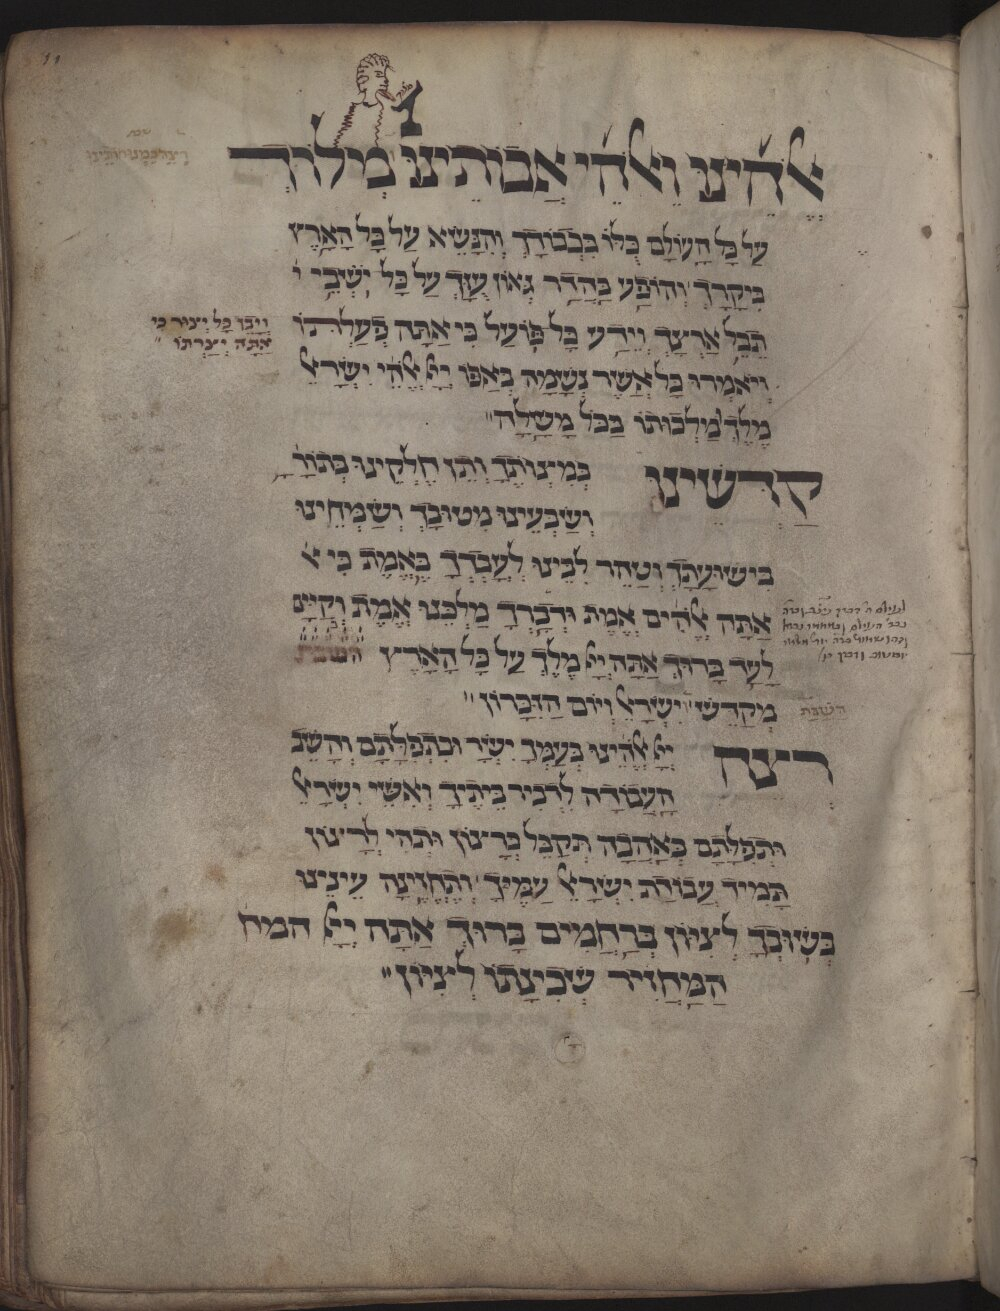 אֱלֹהֵינוּ וֵאלֹהֵי אֲבוֹתֵינוּ מְלוֹךְ
עַל כָּל הָעוֹלָם כֻּלּוֹ בִּכְבוֹדָךְ וְהִנָּשֵׂא עַל כָּל הָאָרֶץ
בִּיקָרָךְ וְהוֹפַע בַּהֲדַר גְּאוֹן עֻזָּךְ עַל כָּל יֹשְׁבֵי י
תֵבֵל אַרְצָךְ וְיֵדַע כָּל פּוֹעַל כִּי אַתָּה פְעַלְתּוֹ
וְיָבֵן כָּל יְצוּר כִּי
אַתָּה יְצַרְתּוֹ
וְיֹאמְרוּ כָּל אֲשֶׁר נְשָׁמָה בְאַפּוֹ יְיָ אֱלֹהֵי יִשְׂרָאֵל
מֶלֶךְ וּמַלְכוּתוֹ בַּכֹּל מָשָׁלָה
קַדְּשֵׁינוּ בְּמִצְוֹתֶךָ וְתֵן חֶלְקֵינוּ בְּתוֹרָ
וְשַׂבְּעֵינוּ מִטּוּבָךְ וְשַׂמְּחֵינוּ
בִּישׁוּעָתָךְ וְטַהֵר לִבֵּינוּ לְעָבְדְּךָ בֶּאֱמֶת כִּי א
אַתָּה אֱלֹהִים אֱמֶת וּדְבָרְךָ מַלְכֵּנוּ אֱמֶת וְקַיָּים
לָעַד בָּרוּךְ אַתָּה יְיָ מֶלֶךְ עַל כָּל הָאָרֶץ השבת
מְקַדֵּשׁ יִשְׂרָאֵל וְיוֹם הַזִּכָּרוֹן
השבת
רְצֵה יְיָ אֱלֹהֵינוּ בְּעַמְּךָ יִשְׂרָ וּבִתְפִלָּתָם וְהָשֵׁב
הָעֲבוֹדָה לִדְבִיר בֵּיתֶיךָ וְאִשֵּׁי יִשְׂרָאֵל
וּתְפִלָּתָם בְּאַהֲבָה תְקַבֵּל בְּרָצוֹן וּתְהִי לְרָצוֹן
תָּמִיד עֲבוֹדַת יִשְׂרָאֵל עַמֶּיךָ וְתֶחֱזֶינָה עֵינֵינוּ
בְּשׁוּבְךָ לְצִיּוֹן בְּרַחֲמִים בָּרוּךְ אַתָּה יְיָ המח
הַמַּחֲזִיר שְׁכִינָתוֹ לְצִיּוֹן